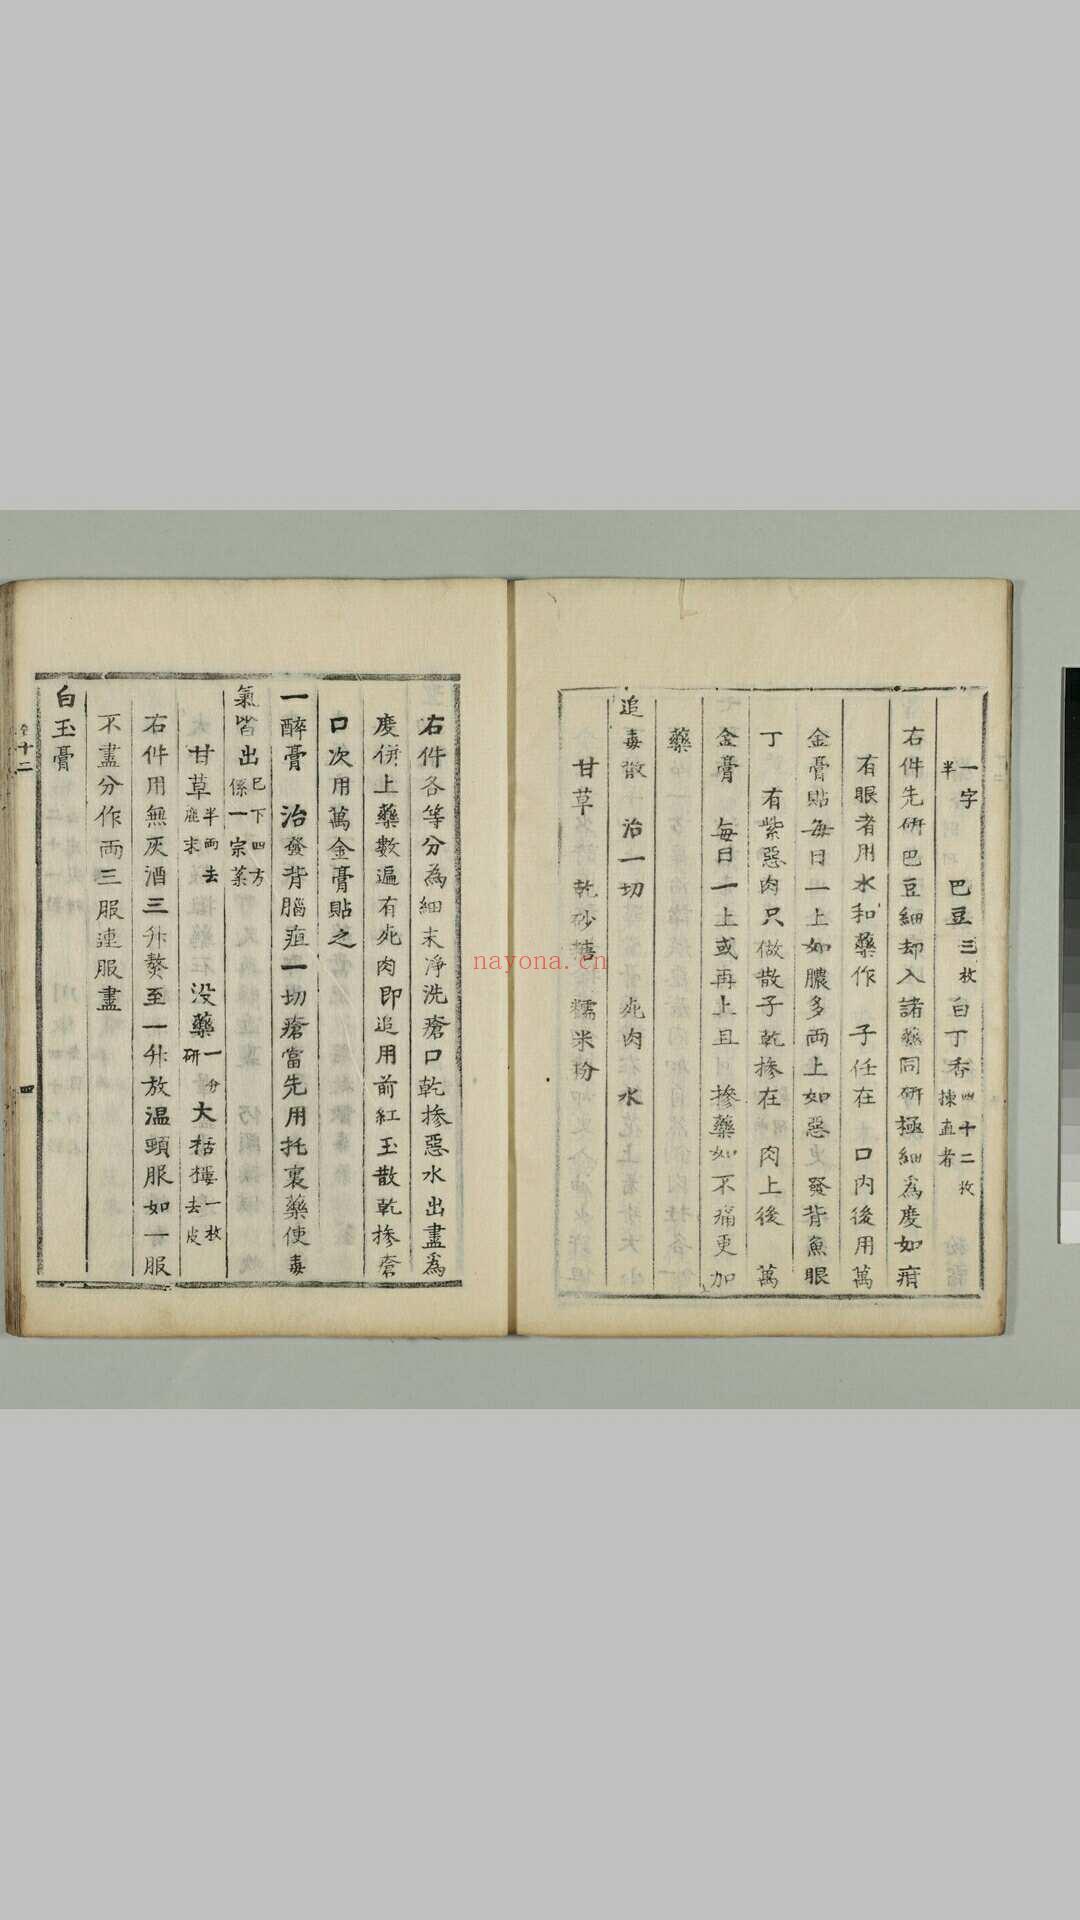 一字半　巴豆三枚　白丁香四十二枚揀直者
右件先研巴豆細却入諸藥同研極細為度如瘡
有眼者用水和藥作　子任在　口内後用萬
金膏貼每日一上如膿多兩上如惡　發背魚眼
丁　有紫惡肉只做散子乾摻在　肉上後　萬
金膏　每日一上或再上且　摻藥如不痛更加
藥
追毒散　治一切　死肉　水
甘草　乾砂糖　糯米粉
右件各等分為細末淨洗瘡口乾摻惡水出盡為
度併上藥數遍有死肉即追用前紅玉散乾摻瘡
口次用萬金膏貼之
一醉膏　治發背腦疽一切瘡當先用托裏藥使毒
氣皆出已下四方係一宗藥
甘草半兩去　没藥一分研　大栝蔞一枚去皮
右件用無灰酒三升熬至一升放温頓服如一服
不盡分作兩三服連服盡
白玉膏
卷十二
四
nayona.cn